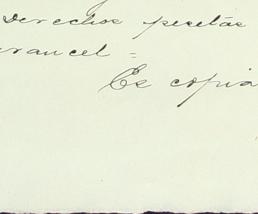 Derechos pesetas
arancel =
Es copia